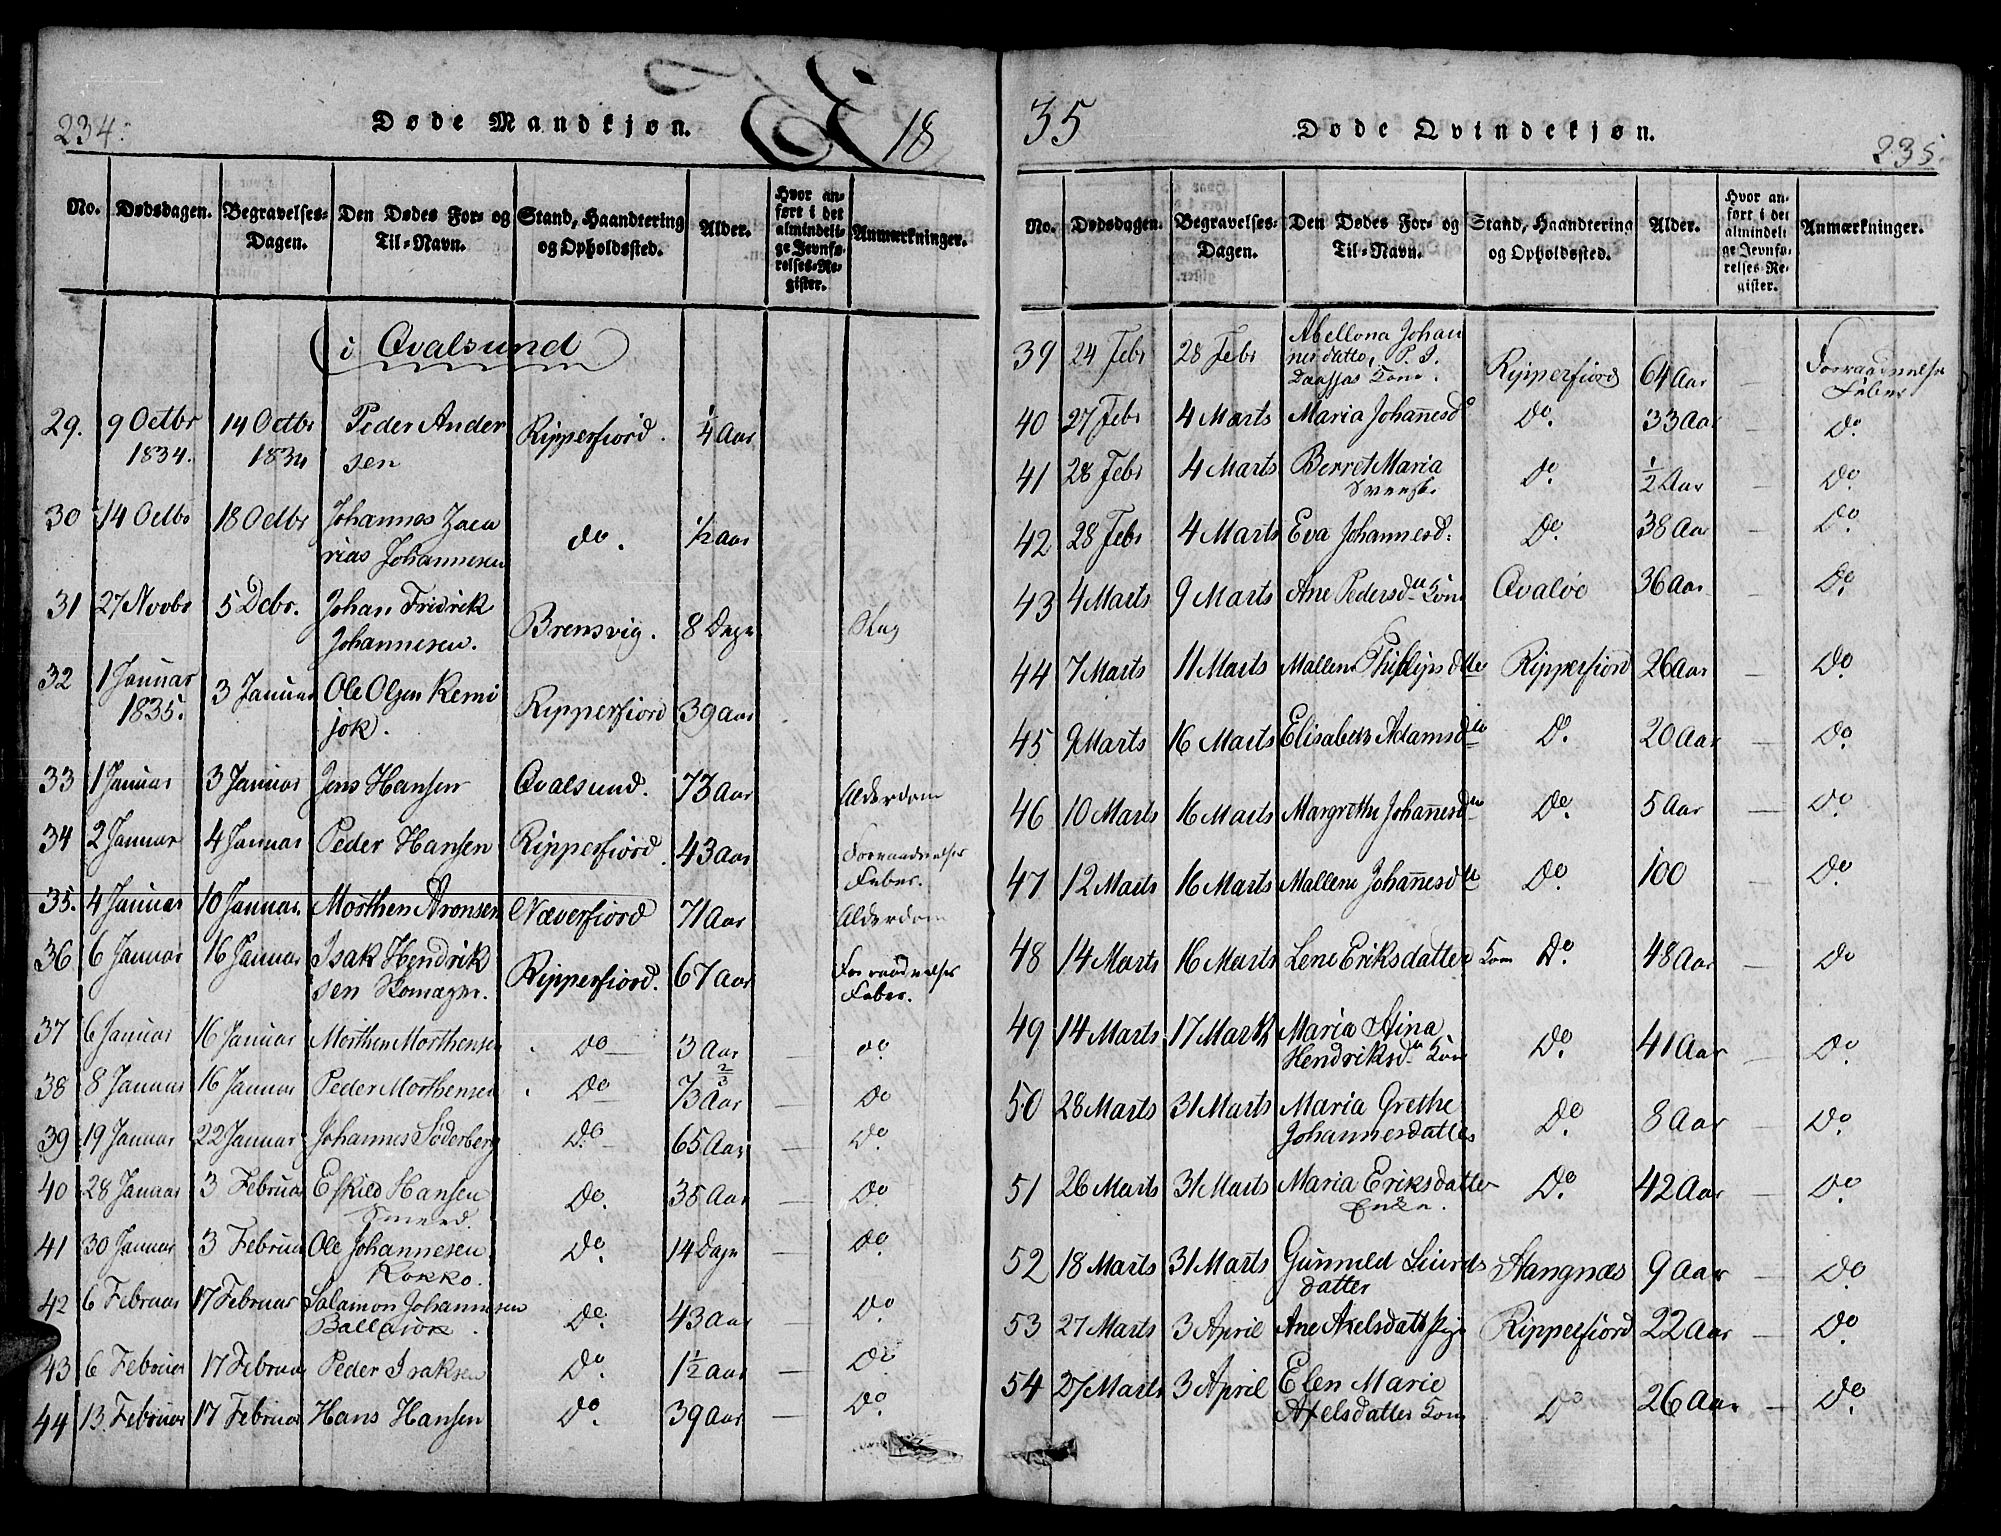 234.
Døde Mandkjøn.
18
No. Dødsdagen. Begravelses-Dagen. Den Dødes For- og Til-Navn. Stand, Haandtering og Opholdssted. Alder. Hvor anført i det almindelige Jevnførelses-Register. Anmærkninger.
i Qvalsund
29. 9 Octbr 1834. 14 Octbr 1834 Peder Andersen Ripperfiord. 1/4 Aar
30 14 Octbr 18 Octbr Johannes Zacarias Johannesen do. 1/2 Aar
31 27 Novbr 5 Debr. Johan Fridrik Johannesen. Brensvig. 8 Dage
32 1 Januar 1835. 3 Januar Ole Olsen Kemijok. Ripperfiord 39 Aar
33 1 Januar 3 Januar Jens Hansen Qvalsund. 73 Aar Alderdom
34 2 Januar 4 Januar Peder Hansen Ripperfiord. 43 Aar Forraadnelses Feber.
35. 4 Januar 10 Januar. Morthen Aronsen Næverfiord 71 Aar Alderdom
36 6 Januar 16 Januar Isak Hendriksen Ripperfiord. 67 Aar Forraadnelses Feber.
37 6 Januar 16 Januar Morthen Morthensen Do 3 Aar — do
38 8 Januar 16 Januar Peder Morthensen Do 2/3 Aar — Do
39 19 Januar 22 Januar Johannes Söderberg Do 65 Aar — Do
40 28 Januar 3 Februar Eskild Hansen Do. 35 Aar — Do
41 30 Januar 3 Februar Ole Johannesen Kokko. Do 14 Dage — Do.
42 6 Februar 17 Februar Salamon Johannesen Do. 43 Aar — Do.
43 6 Februar 17 Februar Peder Isaksen Do. 1 1/2 Aar — Do
44 13. Februar 17 Februar Hans Hansen Do. 39 Aar — Do.
35
Døde Qvindekjøn.
235.
No. Dødsdagen. Begravelses-Dagen. Den Dødes For- og Til-Navn. Stand, Haandtering og Opholdssted. Alder. Hvor anført i det almindelige Jevnførelses-Register. Anmærkninger.
39 24 Febr 28 Febr Abellona Johannisdatter, Ripperfiord 64 Aar — Forraadnelse Feber
40 27 Febr 4 Marts Maria Johanesd Do. 33 Aar — Do.
41 28 Febr 4 Marts Berret Maria Do. 1/2 Aar — Do.
42 28 Febr 4 Marts Eva Johannesd: Do. 38 Aar — Do.
43 4 Marts 9 Marts Ane Pedersd Kone Qvaløe 36 Aar — Do.
44 7 Marts 11 Marts Mallene Philips dtter Ripperfiord 26 Aar — Do
45 9 Marts 16 Marts Elisabeth Adamsd Do. 20 Aar — Do.
46 10 Marts 16 Marts Margrethe Johanesd Do. 5 Aar — Do.
47 12 Marts 16 Marts Mallene Johanesd Do. 100 — Do.
48 14 Marts 16 Marts Lene Eriksdatter Kone Do. 48 Aar — Do
49 14 Marts 17 Marts Maria Stina Hendriksd. Kone Do. 41 Aar — Do.
50 28 Marts 31 Marts Maria Grethe Johannesdatter Do. 8 Aar — Do.
51 26 Marts 31 Marts Maria Eriksdatter Enke. Do. 42 Aar — Do.
52 18 Marts 31 Marts Gunnild Siurdsdatter Stangnæs 9 Aar — Do
53 27 Marts 3 April Ane Axelsdatt Pige Ripperfiord 22 Aar — Do.
54 27 Marts 3 April Elen Marie Axelsdatter Kone Do 26 Aar — Do.